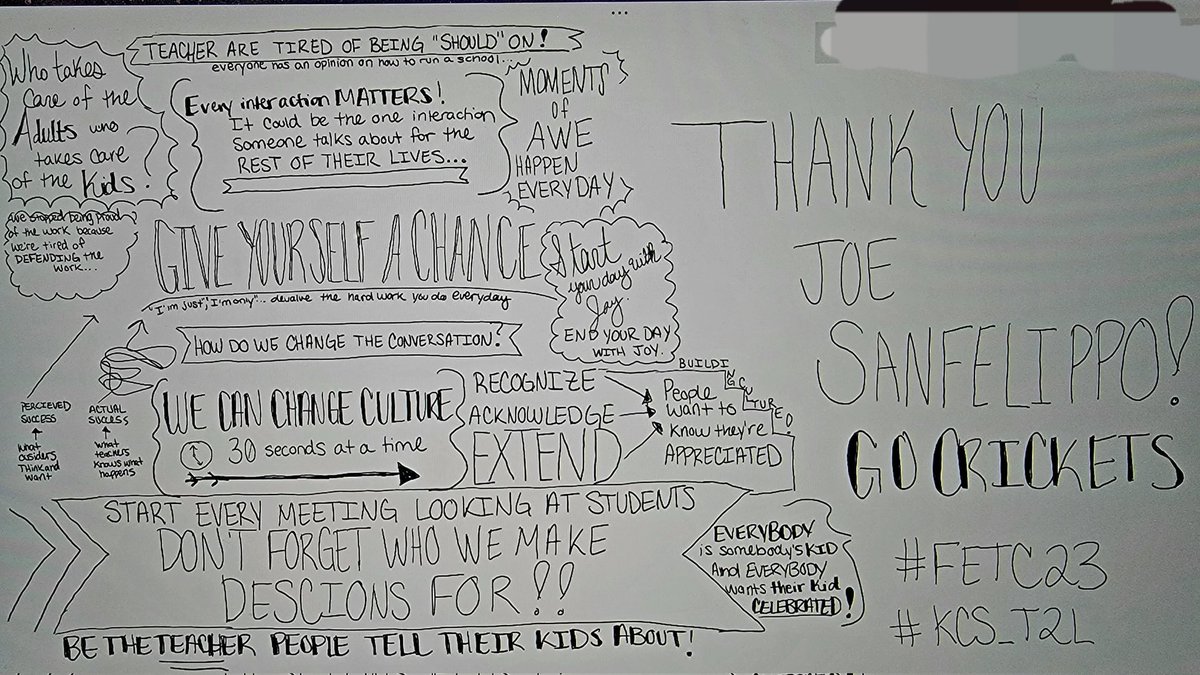 TEACHER ARE TIRED OF BEING "SHOULD" ON!
everyone has an opinion on how to run a school...
Who takes
Care of the
Adults who
takes care
of the Kids?
Every interaction MATTERS!
It could be the one interaction
Someone talks about for the
REST OF THEIR LIVES...
MOMENTS
of
AWE
HAPPEN
EVERYDAY
We stopped being proud
of the work because
we're tired of
DEFENDING the
work...
GIVE YOURSELF A CHANCE
"I'm just", "I'm only"... devalue the hard work you do everyday
Start
your day with
Joy.
END YOUR DAY
WITH JOY.
HOW DO WE CHANGE THE CONVERSATION?
PERCIEVED
SUCCESS
what
outsiders
Think and
want
ACTUAL
SUCCESS
what
teachers
Knows what
happens
WE CAN CHANGE CULTURE
30 seconds at a time
RECOGNIZE
ACKNOWLEDGE
EXTEND
BUILDING CULTURE
People
want to
Know they're
APPRECIATED
START EVERY MEETING LOOKING AT STUDENTS
DON'T FORGET WHO WE MAKE
DESCIONS FOR!!
EVERYBODY
is somebody's KID
And EVERYBODY
wants their Kid
CELEBRATED!
BE THE TEACHER PEOPLE TELL THEIR KIDS ABOUT!
THANK YOU
JOE
SANFELIPPO!
GO CRICKETS
#FETC23
#KCS_T2L